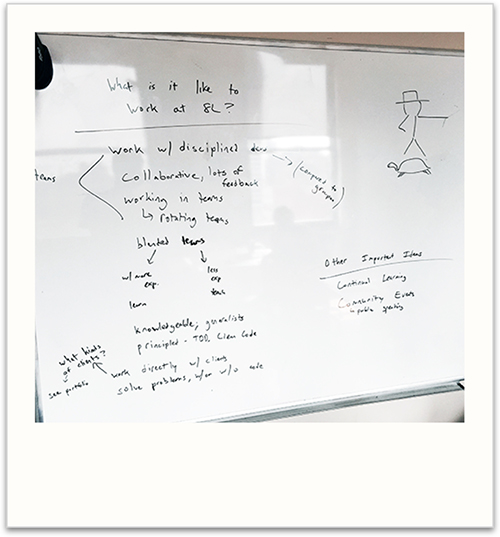 What is it like to
Work at 8L?
Work w/ disciplined devs
(compared to
groupon)
teams
Collaborative, lots of
feedback
working in teams
↳ rotating teams
blended teams
w/ more
exp.
learn
less
exp.
teach
knowledgeable; generalists
principled - TDD, Clean Code
what kinds
of clients?
see portfolio
work directly w/ clients
solve problems, w/or w/o code
Other Important Ideas
Continual Learning
Community Events
↳ public speaking